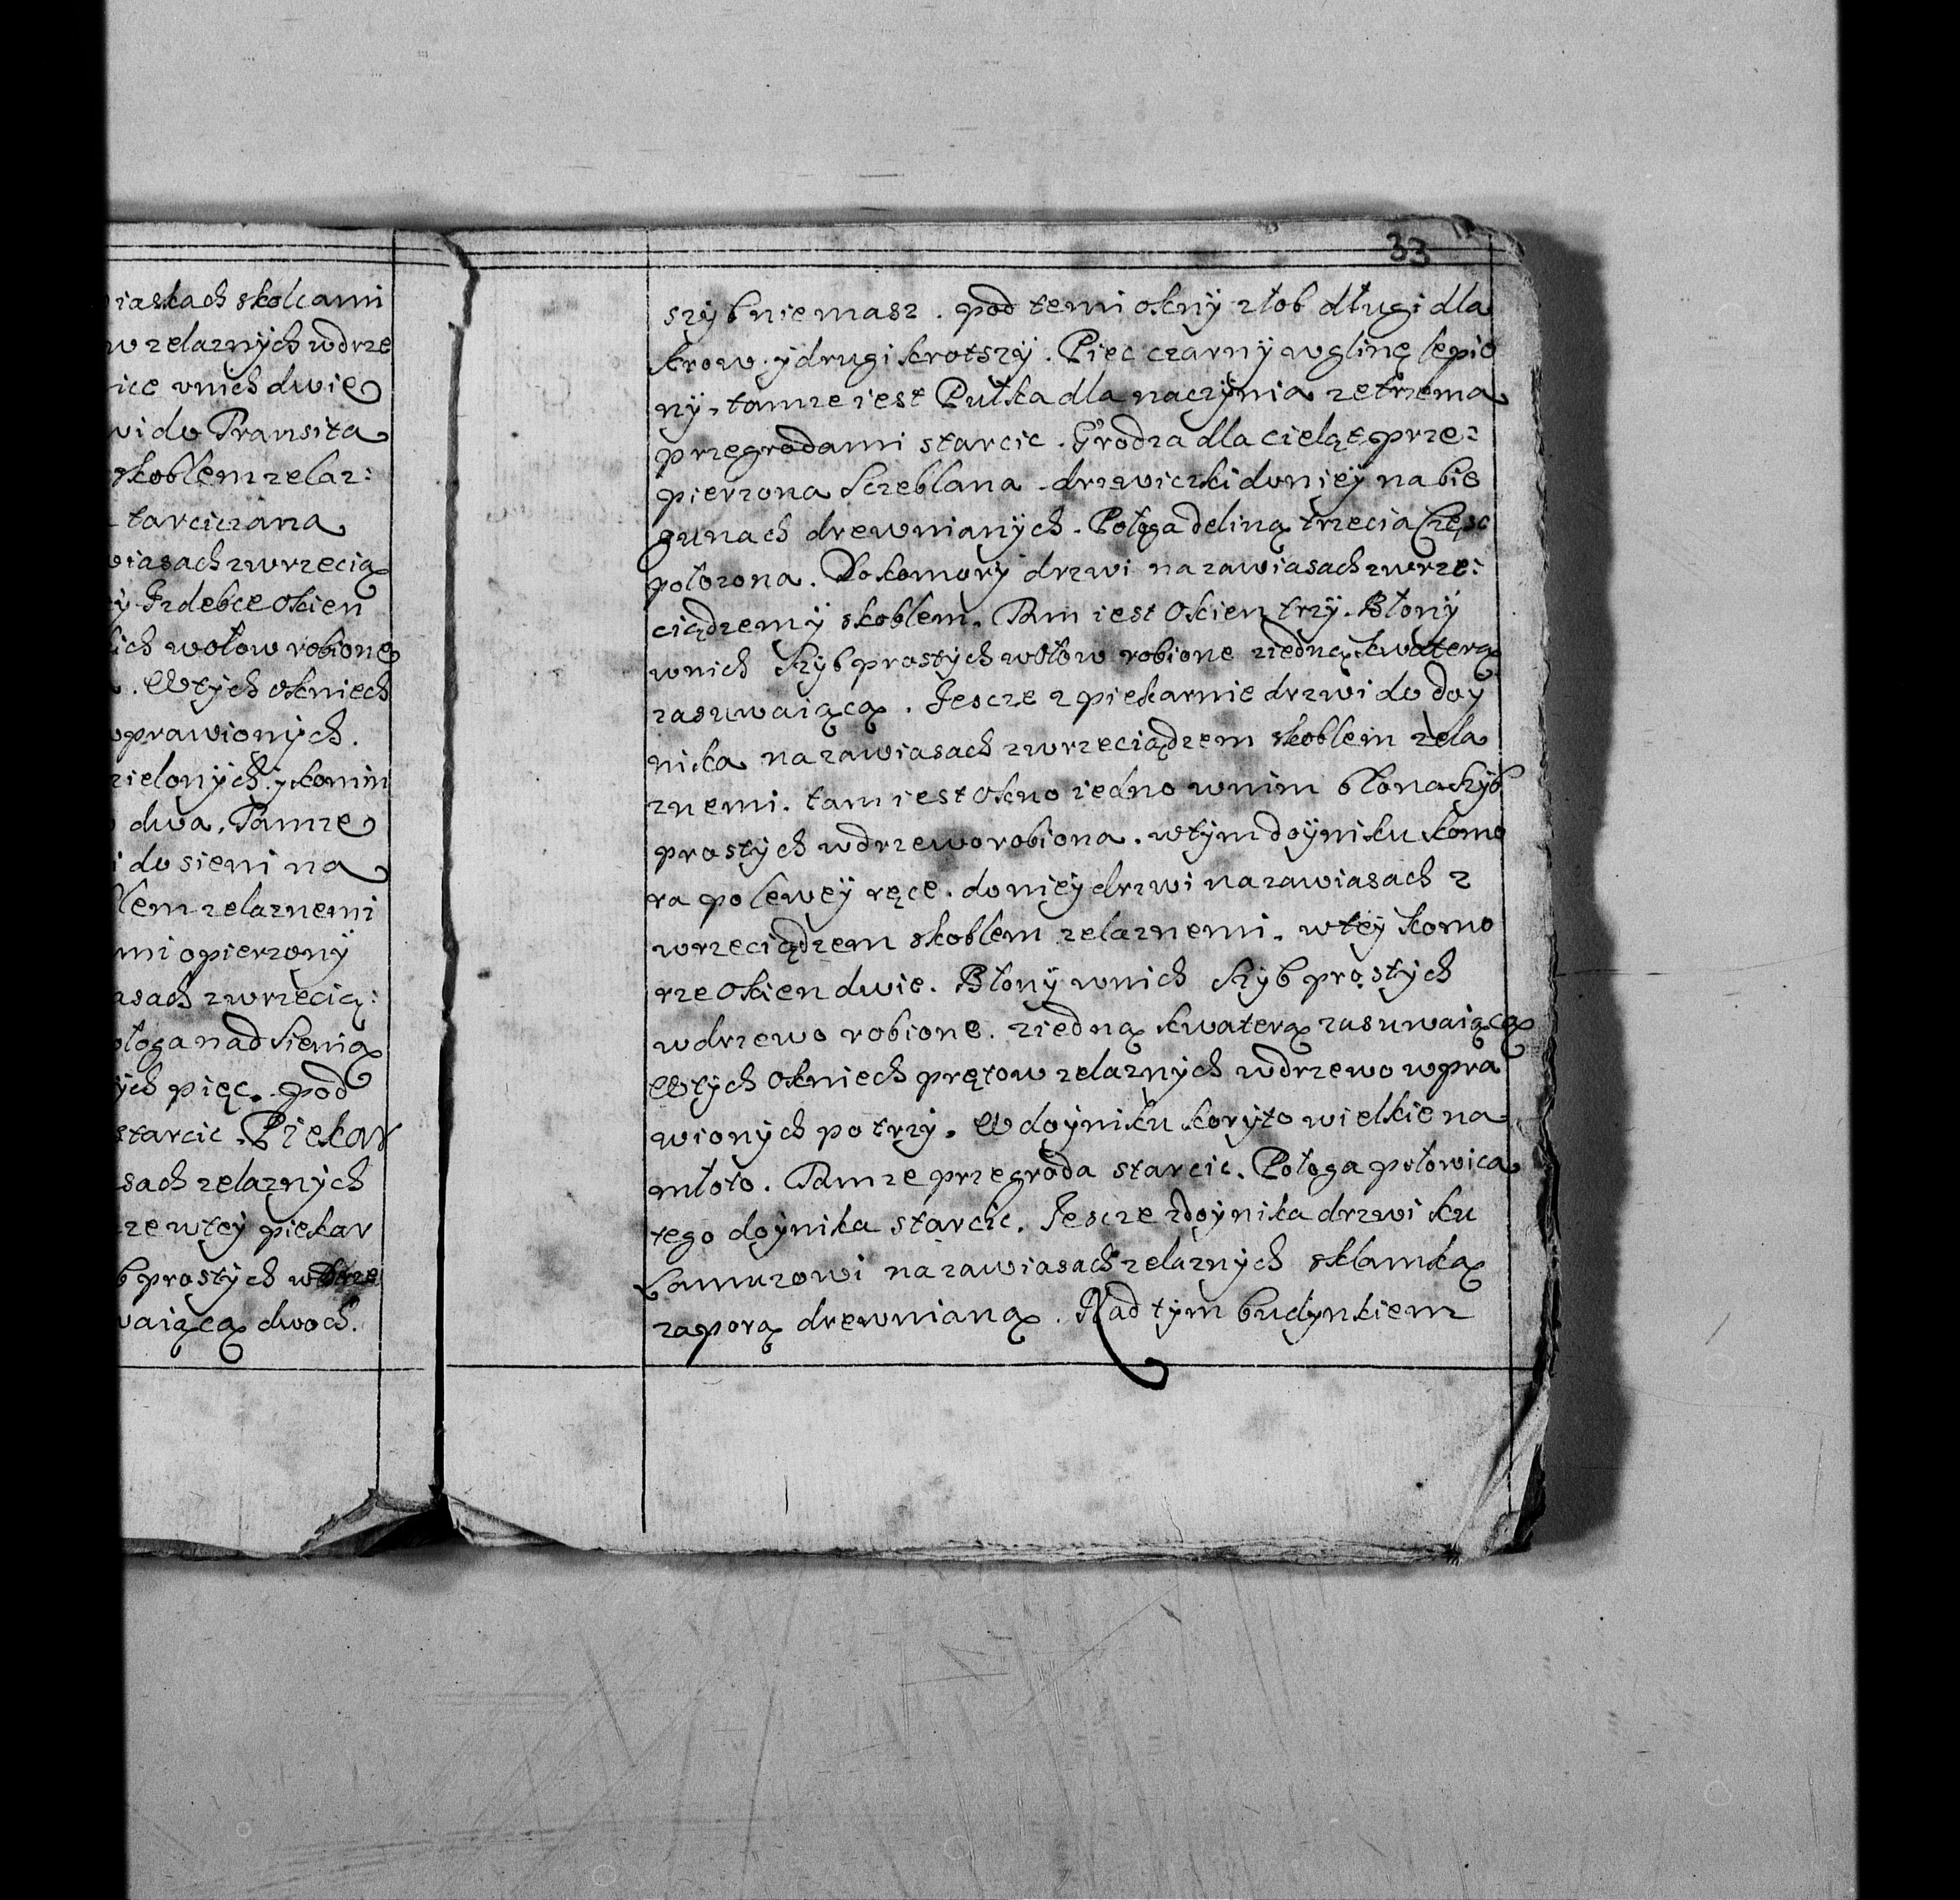 iaskach skolcami
w zelaznych wdrze
nich dwie
wi do Transita
skoblem zelaz:
tarciczana
wiasach zwrzecią
y Izdebce Okien
kich wołow robione
. Wtych okniech
wprawionych.
zielonych. y komin
dwa. Tamze
i do sieni na
blem zelaznemi
mi opierzony
asach zwrzecią:
ologa nad Sienią
ych pięc. pod
starcic. Piekar
sach zelaznych
ze wtey piekar
b prostych wdrze
waiącą dwoch.
33
szyb nie masz. pod temi okny złob długi dla
krow. y drugi krotszy. Piec czarny w glinę lepio
ny. tamze iest Pułka dla naczynia ze trzema
przegrodami starcic. Grodza dla cieląt prze:
pierzona Szczeblana. drzwiczki do niey na bie
gunach drewnianych. Pologa deliną trzecia Częsc
położona. Do komory drzwi na zawiasach zwrze:
ciądzem y skoblem. Tam iest Okien trzy. Błony
wnich Szyb prostych wołow robione ziedną kwaterą
zasuwaiącą. Iescze z piekarnie drzwi do doy
nika na zawiasach zwrzeciądzem skoblem zela
znemi. tam iest okno iedno wnim błona Szyb
prostych wdrzewo robiona. wtym doyniku komo
ra po lewey ręce. do niey drzwi na zawiasach z
wrzeciądzem skoblem zelaznemi. wtey komo
rze Okien dwie. Błony wnich Szyb prostych
wdrzewo robione. ziedną kwaterą zasuwaiącą
Wtych okniech prętow zelaznych wdrzewo wpra
wionych po trzy. W doyniku koryto wielkie na
młoto. Tamze przegroda starcic. Pologa połowica
tego doynika starcic. Iescze zdoynika drzwi ku
Lamuzowi na zawiasach zelaznych sklamką
zaporą drewnianą. Nad tym budynkiem